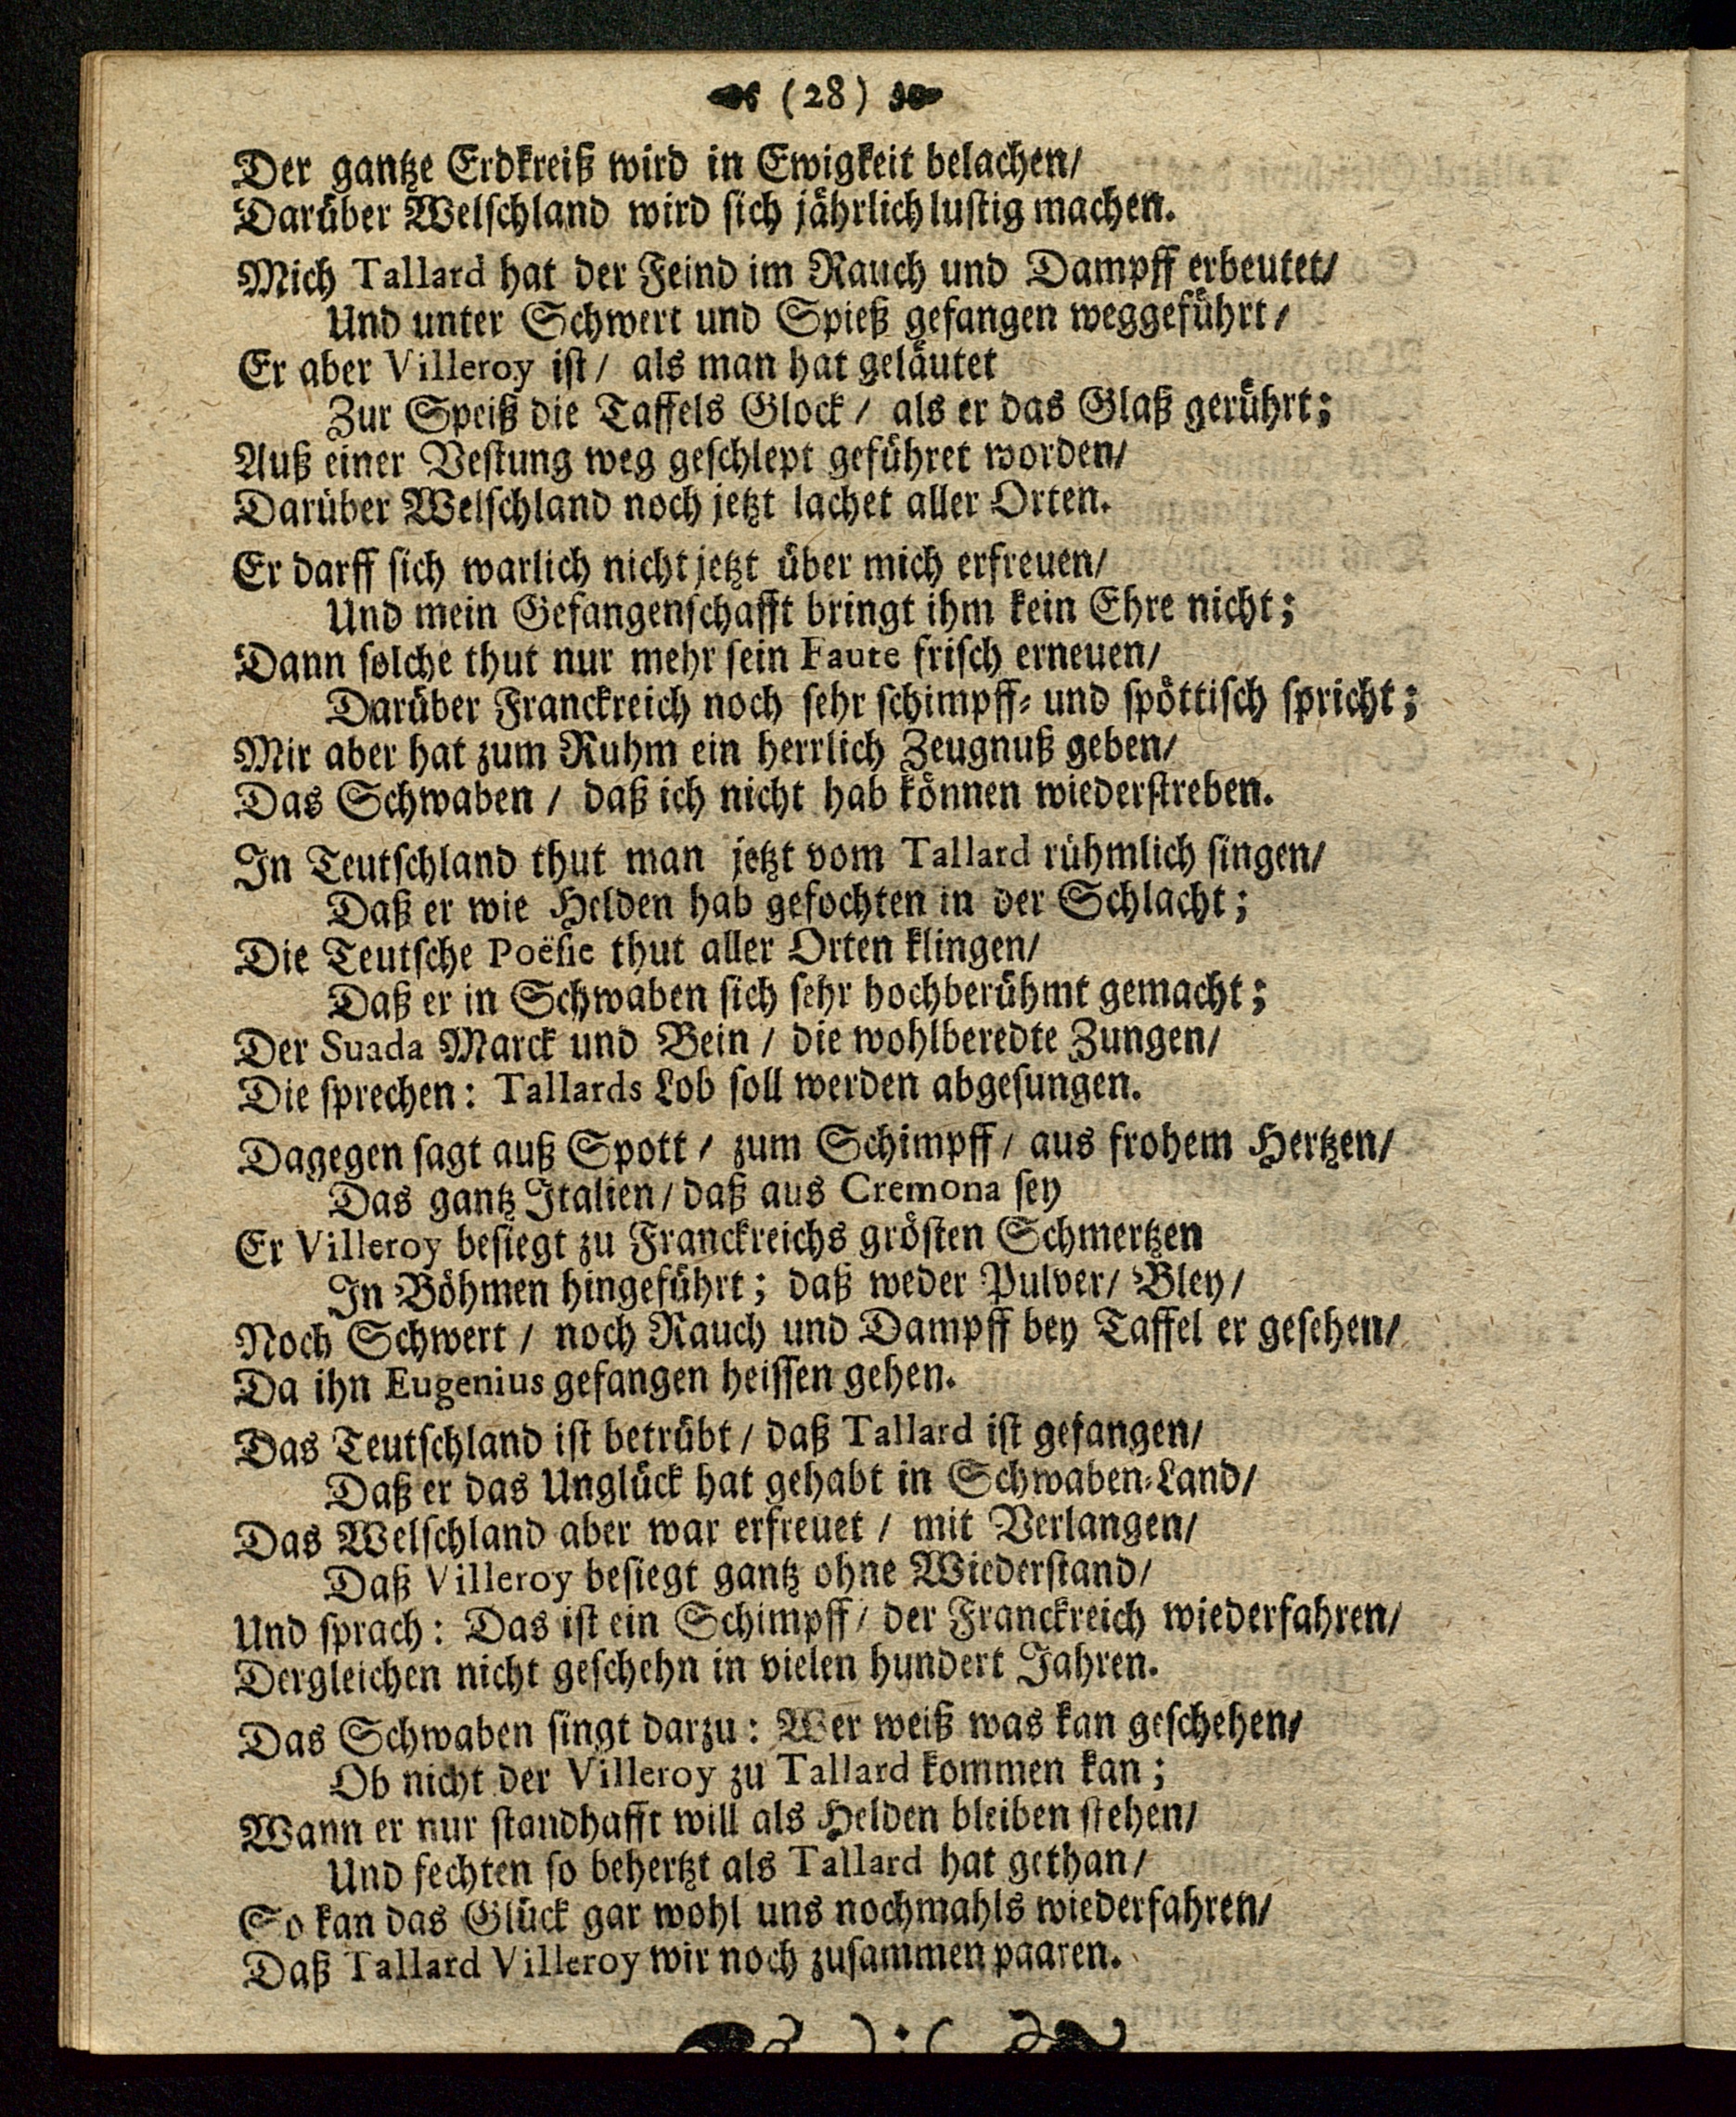 (28)
Der gantze Erdkreiß wird in Ewigkeit belachen/
Darüber Welschland wird sich jährlich lustig machen.
Mich Tallard hat der Feind im Rauch und Dampff erbeutet/
Und unter Schwert und Spieß gefangen weggeführt/
Er aber Villeroy ist/ als man hat geläutet
Zur Speiß die Taffels Glock/ als er das Glaß gerührt;
Auß einer Vestung weg geschlept geführet worden/
Darüber Welschland noch jetzt lachet aller Orten.
Er darff sich warlich nicht jetzt über mich erfreuen/
Und mein Gefangenschafft bringt ihm kein Ehre nicht;
Dann solche thut nur mehr sein Faute frisch erneuen/
Darüber Franckreich noch sehr schimpff- und spöttisch spricht;
Mir aber hat zum Ruhm ein herrlich Zeugnuß geben/
Das Schwaben/ daß ich nicht hab können wiederstreben.
In Teutschland thut man jetzt vom Tallard rühmlich singen/
Daß er wie Helden hab gefochten in der Schlacht;
Die Teutsche Poësie thut aller Orten klingen/
Daß er in Schwaben sich sehr hochberühmt gemacht;
Der Suada Marck und Bein/ die wohlberedte Zungen/
Die sprechen: Tallards Lob soll werden abgesungen.
Dagegen sagt auß Spott/ zum Schimpff/ aus frohem Hertzen/
Das gantz Italien/ daß aus Cremona sey
Er Villeroy besiegt zu Franckreichs grösten Schmertzen
In Böhmen hingeführt; daß weder Pulver/ Bley/
Noch Schwert/ noch Rauch und Dampff bey Taffel er gesehen/
Da ihn Eugenius gefangen heissen gehen.
Das Teutschland ist betrübt/ daß Tallard ist gefangen/
Daß er das Unglück hat gehabt in Schwaben-Land/
Das Welschland aber war erfreuet/ mit Verlangen/
Daß Villeroy besiegt gantz ohne Wiederstand/
Und sprach: Das ist ein Schimpff/ der Franckreich wiederfahren/
Dergleichen nicht geschehn in vielen hundert Jahren.
Das Schwaben singt darzu: Wer weiß was kan geschehen/
Ob nicht der Villeroy zu Tallard kommen kan;
Wann er nur standhafft will als Helden bleiben stehen/
Und fechten so behertzt als Tallard hat gethan/
So kan das Glück gar wohl uns nochmahls wiederfahren/
Daß Tallard Villeroy wir noch zusammen paaren.